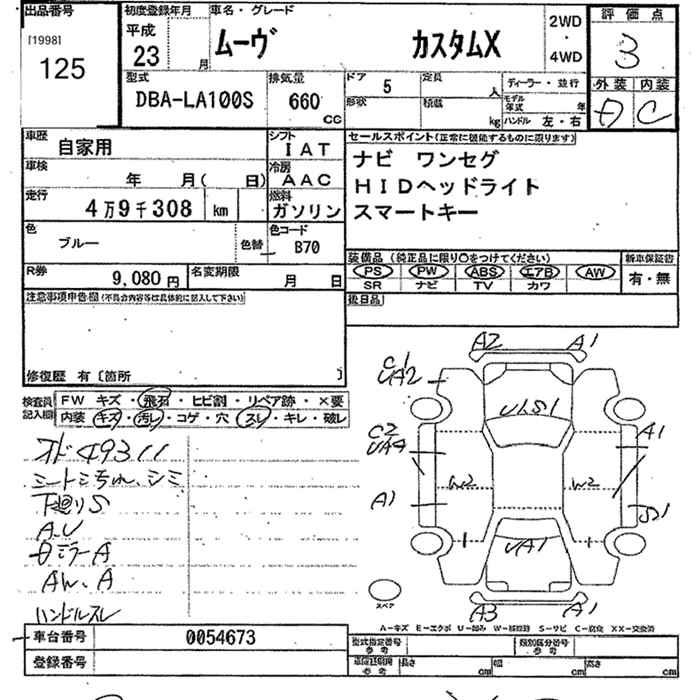 出品番号 初度登録年月 車名・グレード 評価点
[1998] 平成 2WD
125 23 月 ムーヴ カスタムX ・ 3
4WD
型式 排気量 ドア 5 定員 人 ディーラー・並行 外装 内装
DBA-LA100S 660 cc 形状 積載 kg モデル年式 年 C
ハンドル 左・右
車歴 自家用 シフト IAT セールスポイント(正常に機能するものに限ります)
車検 年 月( 日) 冷房 AAC ナビ ワンセグ
走行 4万9千308 km 燃料 ガソリン HIDヘッドライト
スマートキー
色 ブルー 色替 色コード B70
装備品(純正品に限り○をつけてください) 新車保証書
R券 9,080円 名変期限 月 日 PS PW ABS エアB AW 有・無
SR ナビ TV カワ
注意事項申告欄(不具合内容等は具体的に記入して下さい) 後日品
修復歴 有〔箇所 〕
検査員記入欄 FW キズ・飛石・ヒビ割・リペア跡・×要
内装 キズ・汚レ・コゲ・穴・スレ・キレ・破レ
A2 A1
C1
UA2
U1S1
C2 A1
UA4
W2 W2
A1 S1
UA1
A3 A1
オド49311
シート汚れ、シミ
下廻りS
A.U
ミラーA
AW、A
ハンドルスレ
スペア
A-キズ E-エクボ U-凹み W-補修跡 S-サビ C-腐食 XX-交換済
車台番号 0054673 型式指定番号 参考 類別区分番号 参考
登録番号 車庫証明用 参考 長さ cm 幅 cm 高さ cm